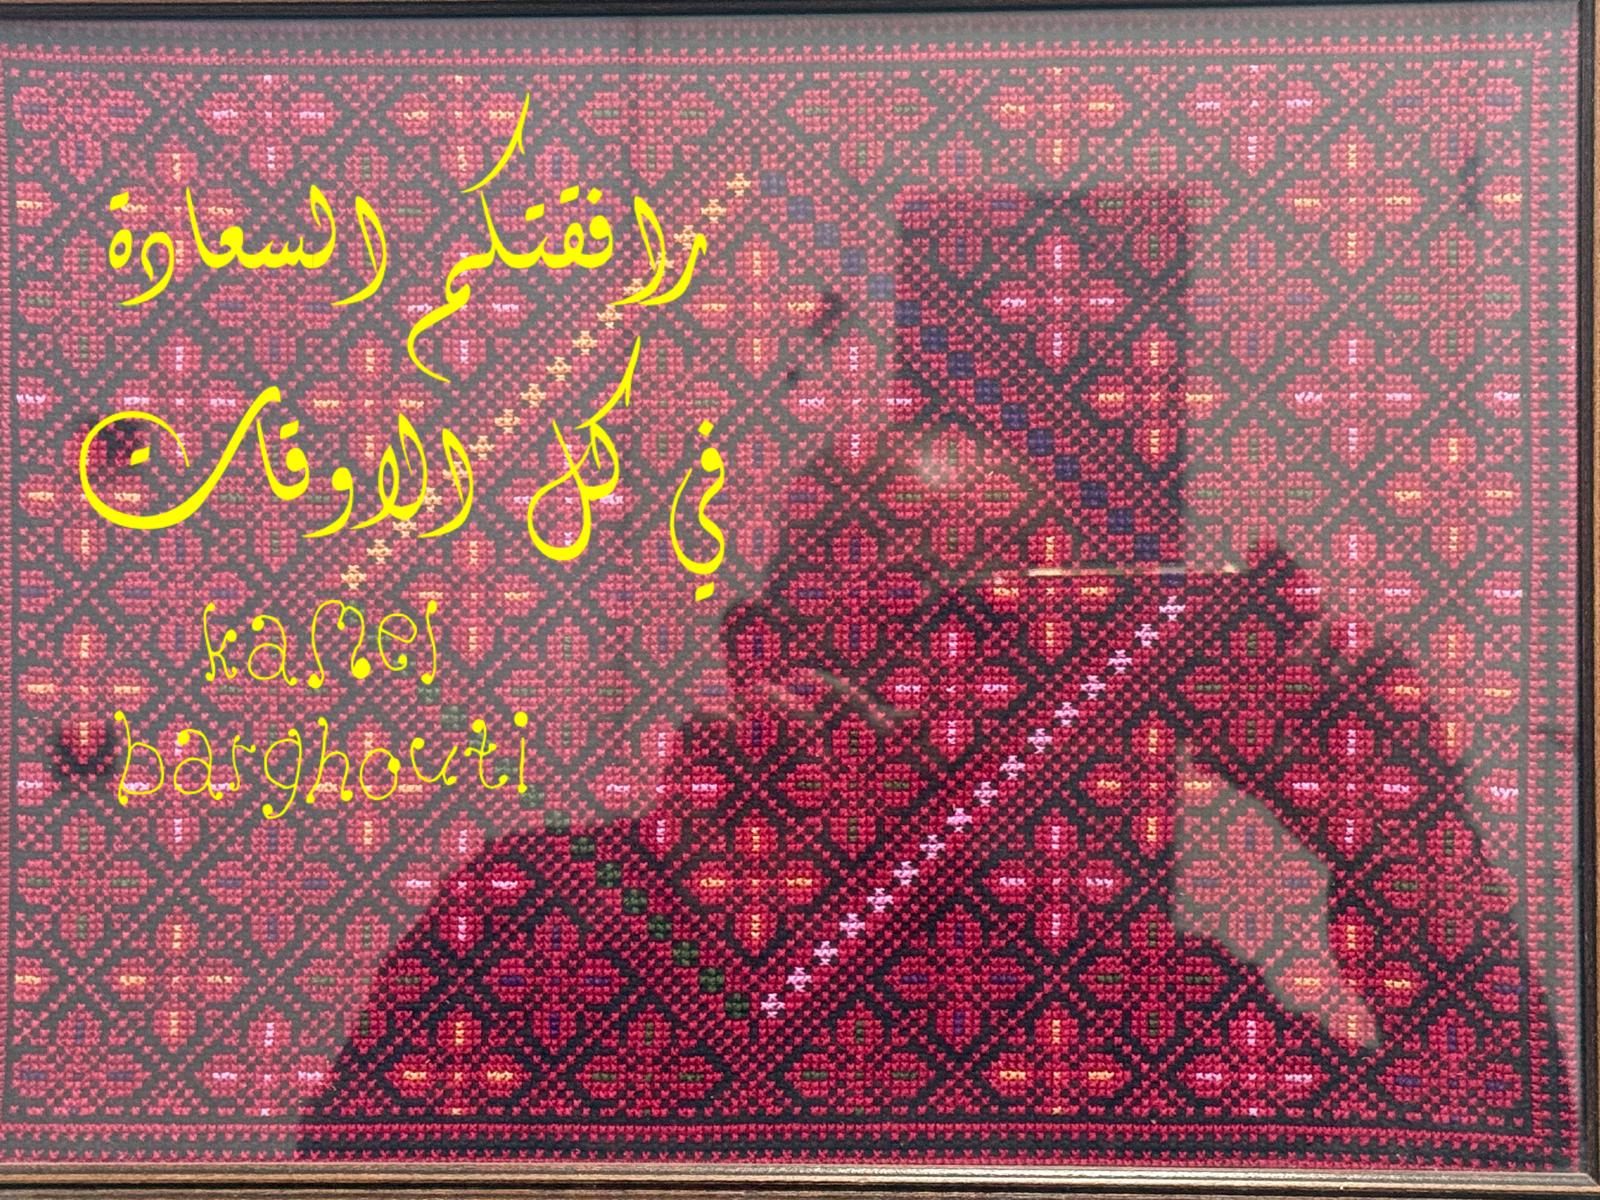 رافقتكم السعادة
في كل الاوقات
kamel
barghouti